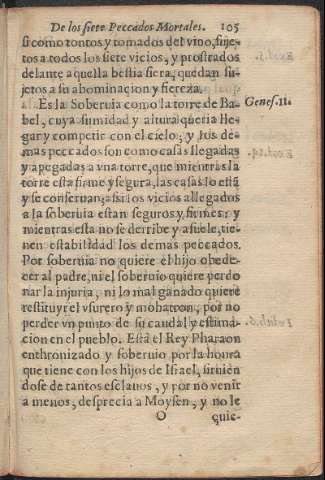 De los siete Peccados Mortales. 105
si como tontos y tomados del vino, suje-
tos a todos los siete vicios, y prostrados
delante aquella bestia fiera, quedan su-
jetos a su abominacion y fiereza.
Es la Soberuia como la torre de Ba- Genes. 11.
bel, cuya sumidad y altura queria lle-
gar y competir con el cielo: y los de-
mas peccados son como casas llegadas
y apegadas a vna torre, que mientras la
torre està firme y segura, las casas lo estã
y se conseruan; assi los vicios allegados
a la soberuia estan seguros y firmes: y
mientras esta no se derribe y assuele, tie-
nen estabilidad los demas peccados.
Por soberuia no quiere el hijo obede-
cer al padre, ni el soberuio quiere perdo
nar la injuria, ni lo mal ganado quiere
restituyr el vsurero y mohatron, por no
perder vn punto de su caudal y estima-
cion en el pueblo. Està el Rey Pharaon
enthronizado y soberuio por la honra
que tiene con los hijos de Israel, siruiẽ
dose de tantos esclauos, y por no venir
a menos, desprecia a Moysen, y no le
O quie-